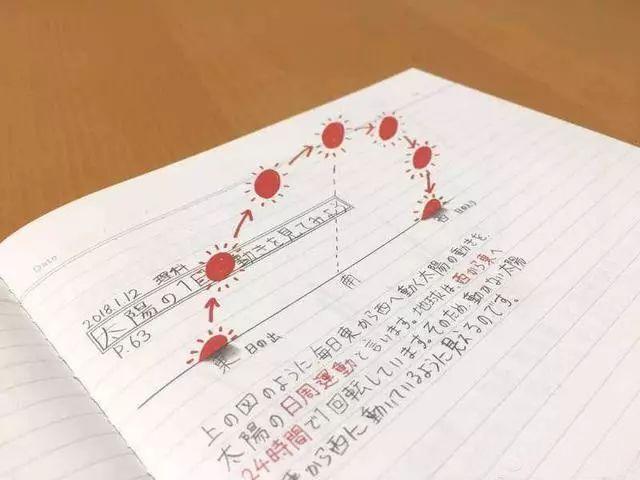 Date
2018.1.12 理科
太陽の1日の動きを見てみよう
P.63
東 日の出
南
西 日の入り
上の図のように、毎日東から西へ動く太陽の動きを、
太陽の日周運動と言います。地球は西から東へ
24時間で1回転しています。そのため、動かない太陽
から西に動いているように見えるのです。